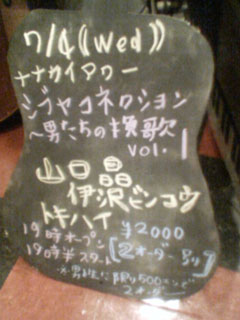 7/4 (Wed)
ナナカイアワー
ジプヤコネクション
〜男たちの挽歌
vol.1
山口晶
伊沢ビンコウ
トキハイ
19時オープン ¥2000
19時半スタート [2オーダー別]
※男性に限り500エンで
2オーダー